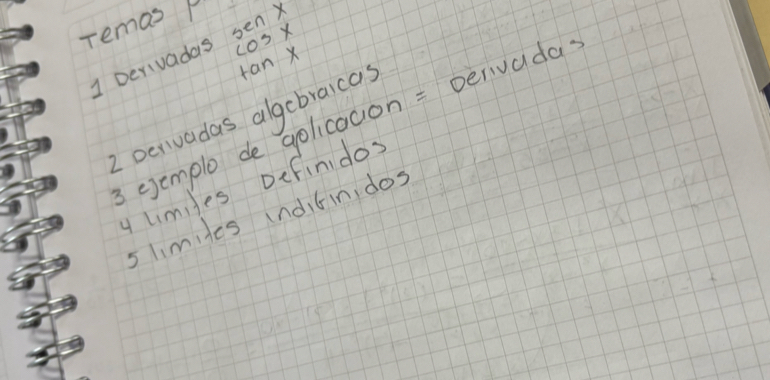 Temas
1 Derivadas sen x
cos x
tan x
2 Derivadas algebraicas
3 ejemplo de aplicacion = Derivadas
4 limites Definidos
5 limites indifinidos